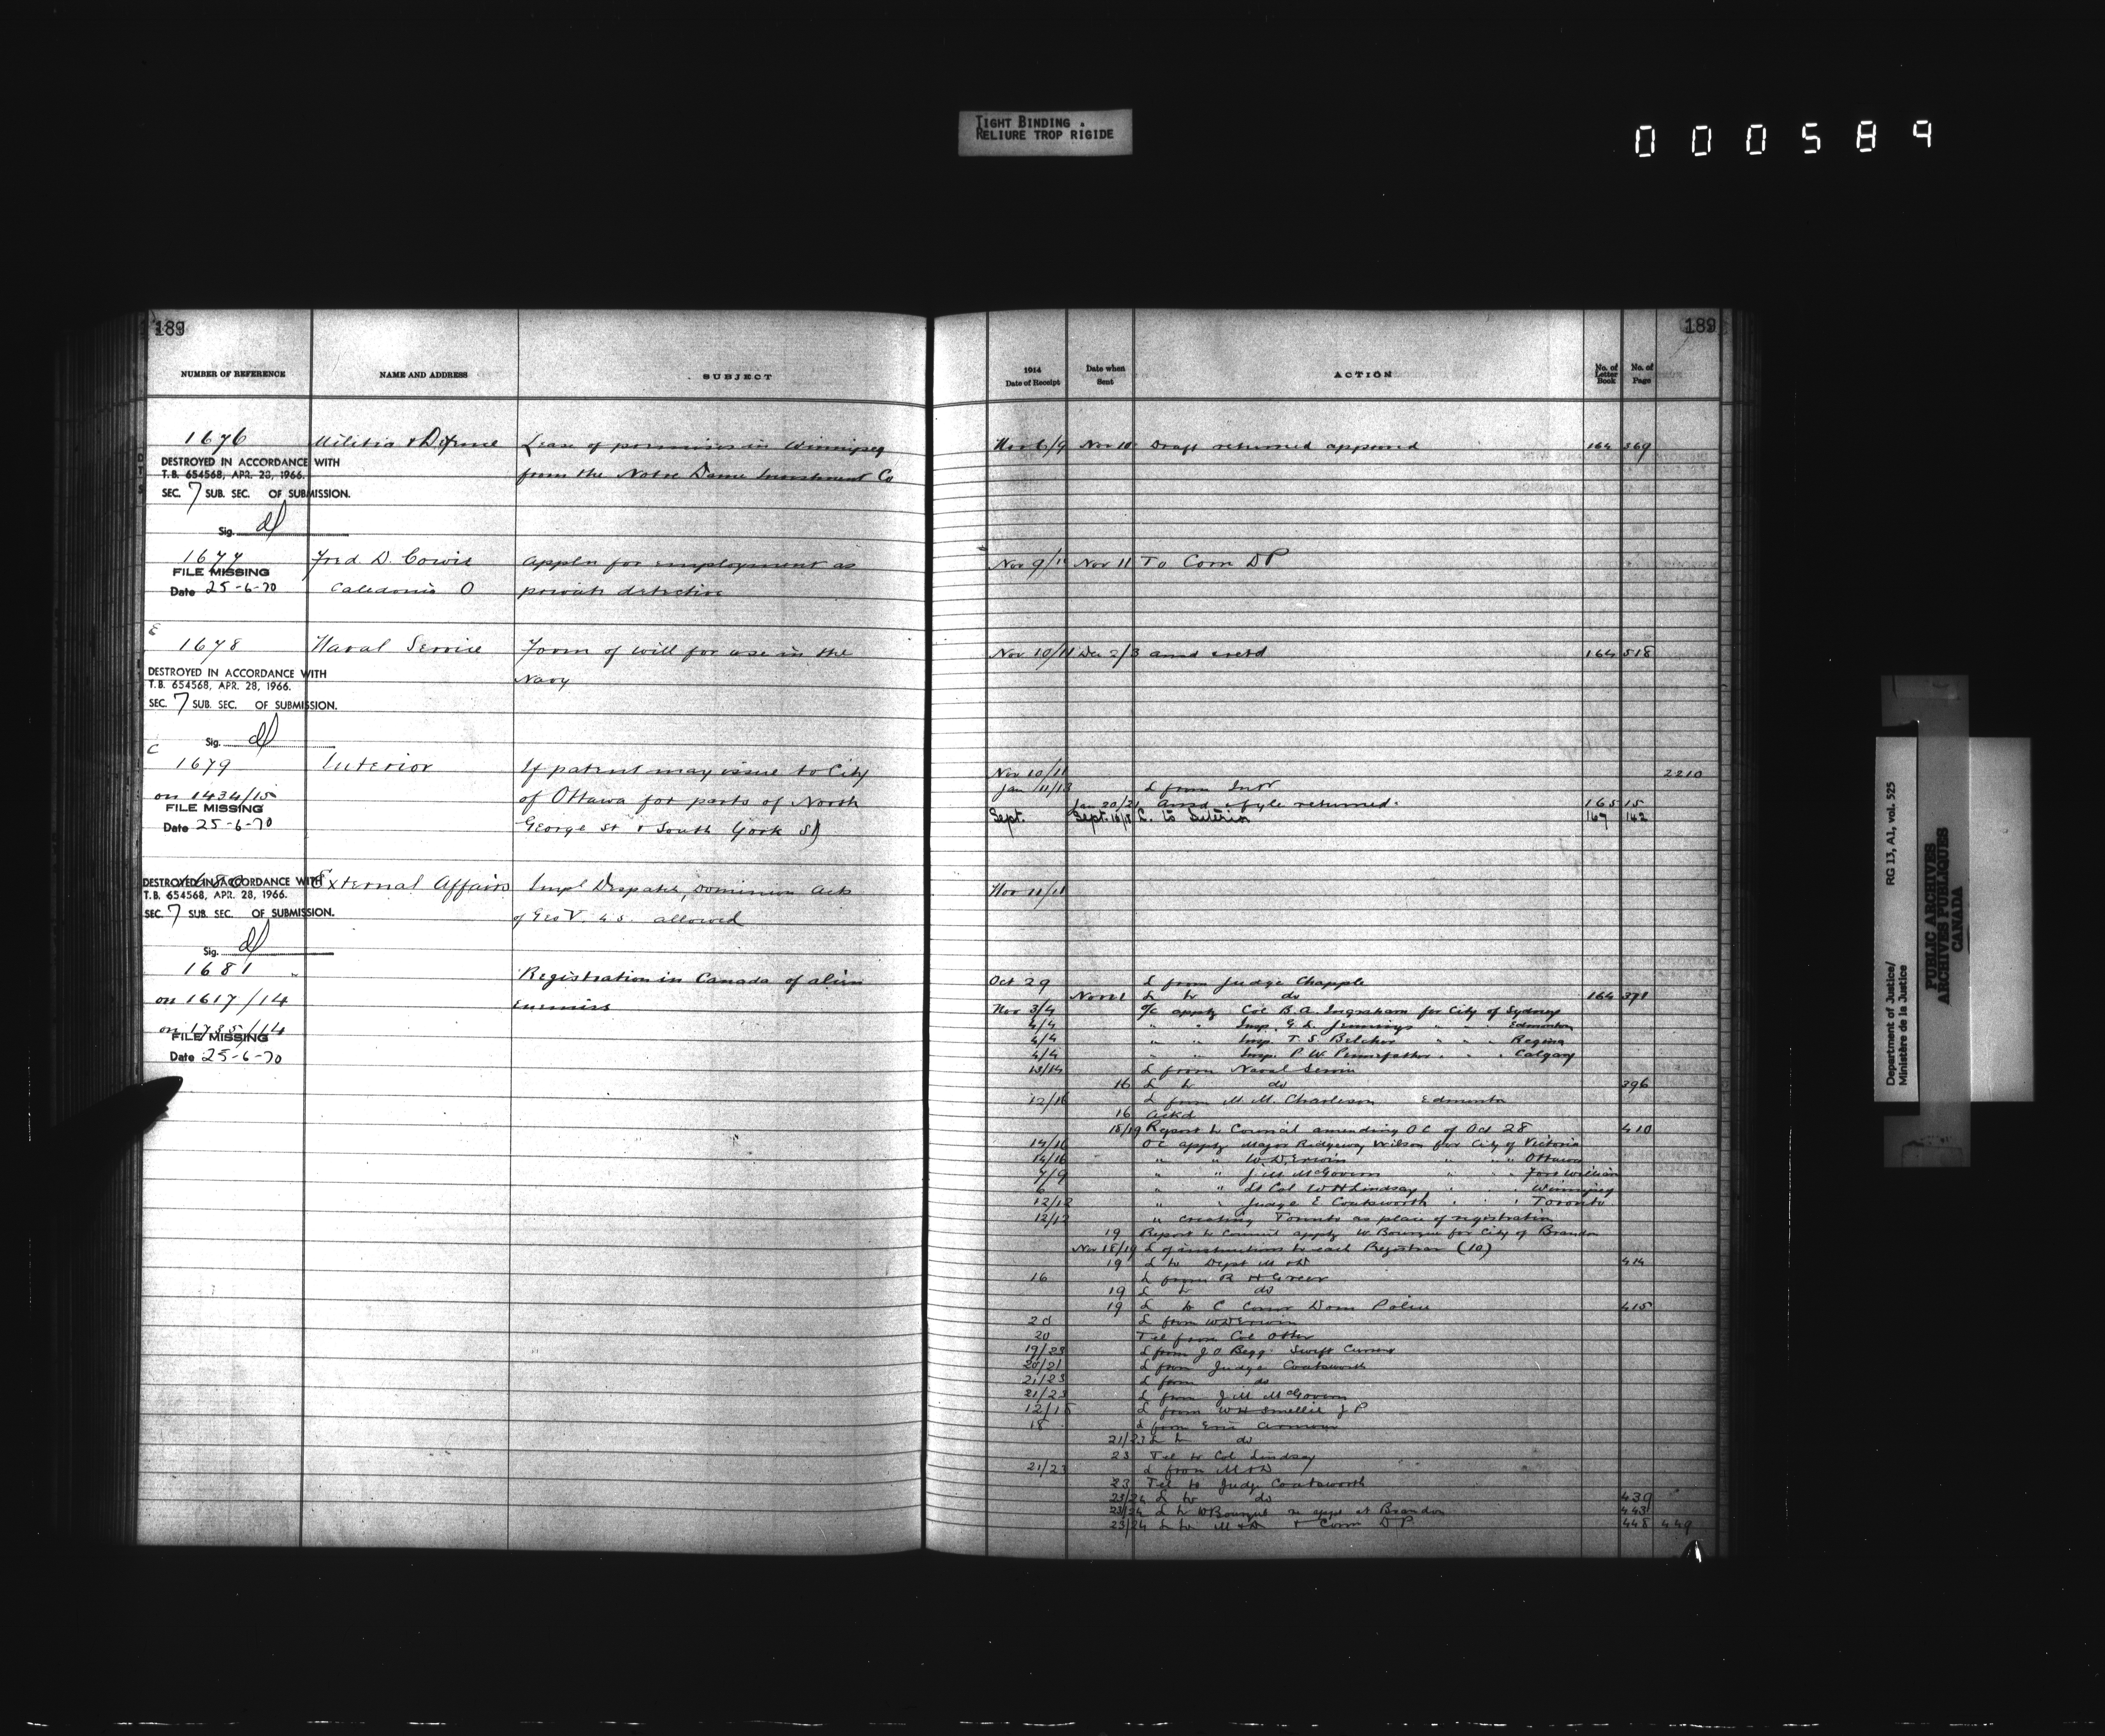 TIGHT BINDING.
RELIURE TROP RIGIDE
000589
189
NUMBER OF REFERENCE
NAME AND ADDRESS
SUBJECT
1676
Militia & Defence
Lease of premises in Winnipeg
DESTROYED IN ACCORDANCE WITH
T.B. 654568, APR. 28, 1966.
from the Notre Dame Investment Co
SEC. 7 SUB. SEC. OF SUBMISSION.
Sig.
1677
Fred D Cowie
Appln for employment as
FILE MISSING
Date 25-6-70
Caledonia O
private detective
E
1678
Naval Service
Form of will for use in the
DESTROYED IN ACCORDANCE WITH
T.B. 654568, APR. 28, 1966.
Navy
SEC. 7 SUB. SEC. OF SUBMISSION.
Sig.
C
1679
Interior
If patent may issue to City
on 1434/15
of Ottawa for parts of North
FILE MISSING
Date 25-6-70
George St & South York St
DESTROYED IN ACCORDANCE WITH
External Affairs
Impl Despatch, Dominion Acts
T.B. 654568, APR. 28, 1966.
SEC. 7 SUB. SEC. OF SUBMISSION.
of Geo V. 4 5. allowed
Sig.
1681
Registration in Canada of alien
on 1617/14
enemies
on 1735/14
FILE MISSING
Date 25-6-70
189
1914
Date of Receipt
Date when
Sent
ACTION
No. of
Letter
Book
No. of
Page
Nov 6/9 Nov 10 Draft returned approved 164 369
Nov 9/11 Nov 11 To Com DP
Nov 10/11 Dec 2/3 164 518
Nov 10/11 2210
Jan 11/13 L from Intr
Jan 20/21 & file returned. 165 15
Sept. Sept. 16/18 L. to Interior 167 162
Nov 11/11
Oct 29 L from Judge Chapple
L to do 164 371
Nov 3/4 O/C apptg Col B. A. Ingraham for City of Sydney
4/4 " " Insp. G. L. Jennings " " Edmonton
4/4 " " Insp. T. S. Belcher " " " Regina
4/4 " " Insp. P. W. Pennefather " " " Calgary
13/14 L from Naval Service
16 L to do 396
12/16 L from M. M. Charleson Edmonton
16 Ackd
18/19 Report to Council amending OC of Oct 28 410
14/16 OC apptg Major Ridgeway Wilson for City of Victoria
14/16 " " W. D. Erwin " " " Ottawa
7/9 " " J M McGovern " " " Fort William
6 " " Lt Col W H Lindsay " " " Winnipeg
12/12 " " Judge E Coatsworth " " " Toronto
12/12 " creating Toronto as place of registration
19 Report to Council apptg W Bourque for City of Brandon
Nov 18/19 L of instructions to each Registrar (10)
19 L to Dept M & D 414
16 L from R H Greer
19 L to do
19 L to C Comr Dom Police 415
20 L from W D Erwin
20 Tel from Col Otter
19/23 L from J O Begg Swift Current
20/21 L from Judge Coatsworth
21/23 L from do
21/23 L from J M McGovern
12/18 L from W H Smellie J P
18 L from Eric Armour
21/23 L to do
23 Tel to Col Lindsay
21/23 L from M & D
23 Tel to Judge Coatsworth
23/24 L to do 439
23/24 L to W Bourque re at Brandon 443
23/24 L to M & D & Comr D P 448 449
Department of Justice/
Ministère de la Justice
RG 13, A1, vol. 525
PUBLIC ARCHIVES
ARCHIVES PUBLIQUES
CANADA